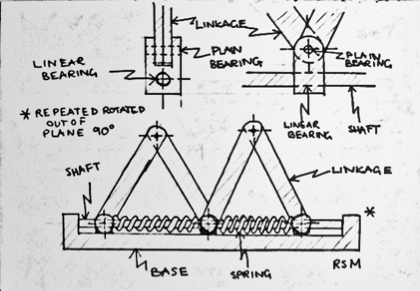 LINKAGE
PLAIN
BEARING
LINEAR
BEARING
PLAIN
BEARING
LINEAR
BEARING
SHAFT
* REPEATED ROTATED
OUT OF
PLANE 90°
SHAFT
LINKAGE
*
BASE
SPRING
RSM